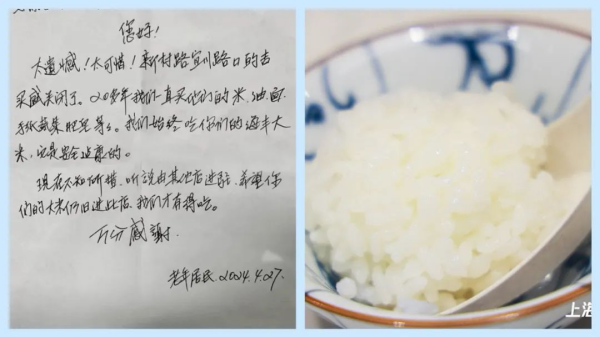 您好!
太遗憾!太可惜!新村路宜川路口的吉
买盛关闭了。20多年我们一直买他们的米、油、面、
手纸 肥皂等等。我们始终吃你们的 丰大
米,它是安全 的。
现在不知所措,听说由其他店进驻,希望你
们的大米仍旧进此店,我们才有得吃。
万分感谢.
老年居民.2024.4.27.
上海